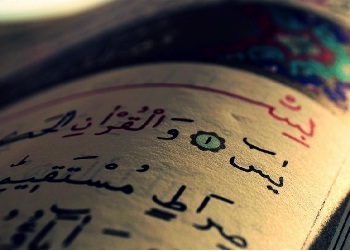 يسٓ
يسٓ ١ وَالْقُرْاٰنِ الْحَـ
صِرَاطٍ مُسْتَقِيمٍ